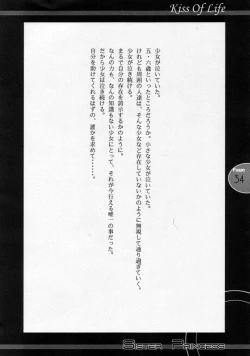 Kiss Of Life
少女が泣いていた。
五・六歳といったところだろうか。小さな少女が泣いていた。
けれども周囲の人達は、そんな少女など存在していないかのように無視して通り過ぎていく。
少女が泣き続ける。
まるで自分の存在を誇示するかのように。
なんの力も、なんの知識もない少女にとって、それが今行える唯一の事だった。
だから少女は泣き続ける。
自分を助けてくれるはずの、誰かを求めて……。
Page:
54
Sister Princess